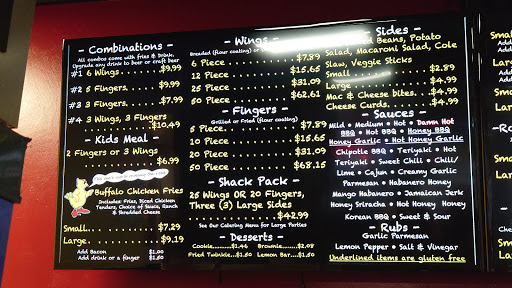 - Combinations -
All combos come with fries & drink.
Upgrade any drink to beer or craft beer
#1 6 Wings.....$9.99
#2 5 Fingers.....$9.99
#3 3 Fingers.....$7.99
#4 3 Wings, 3 Fingers
.....$10.49
- Kids Meal -
2 Fingers or 3 Wings
.....$6.99
Buffalo Chicken Fries
Includes: Fries, Sliced Chicken
Tenders, Choice of Sauce, Ranch
& Shredded Cheese
Small.....$7.29
Large.....$9.19
Add Bacon $1.00
Add drink or a finger $1.50
- Wings -
Breaded (flour coating) or
6 Piece.....$7.89
12 Piece.....$15.65
25 Piece.....$31.09
50 Piece.....$62.61
- Fingers -
Grilled or Fried (flour coating)
5 Piece.....$7.89
10 Piece.....$15.65
20 Piece.....$31.09
50 Piece.....$63.15
- Shack Pack -
25 Wings OR 20 Fingers,
Three (3) Large Sides
.....$42.99
See Our Catering Menu for Large Parties
- Desserts -
Cookie.....$1.44 Brownie...$2.08
Fried Twinkie...$1.50 Lemon Bar....$1.50
- Sides -
Beans, Potato
Salad, Macaroni Salad, Cole
Slaw, Veggie Sticks
Small.....$2.89
Large.....$4.99
Mac & Cheese bites...$4.99
Cheese Curds.....$4.99
- Sauces -
Mild • Medium • Hot • Damn Hot
BBQ • Hot BBQ • Honey BBQ
Honey Garlic • Hot Honey Garlic
Chipotle BBQ • Teriyaki • Hot
Teriyaki • Sweet Chili • Chili/
Lime • Cajun • Creamy Garlic
Parmesan • Habanero Honey
Mango Habanero • Jamaican Jerk
Honey Sriracha • Hot Honey
Korean BBQ • Sweet & Sour
- Rubs -
Garlic Parmesan
Lemon Pepper • Salt & Vinegar
Underlined items are gluten free